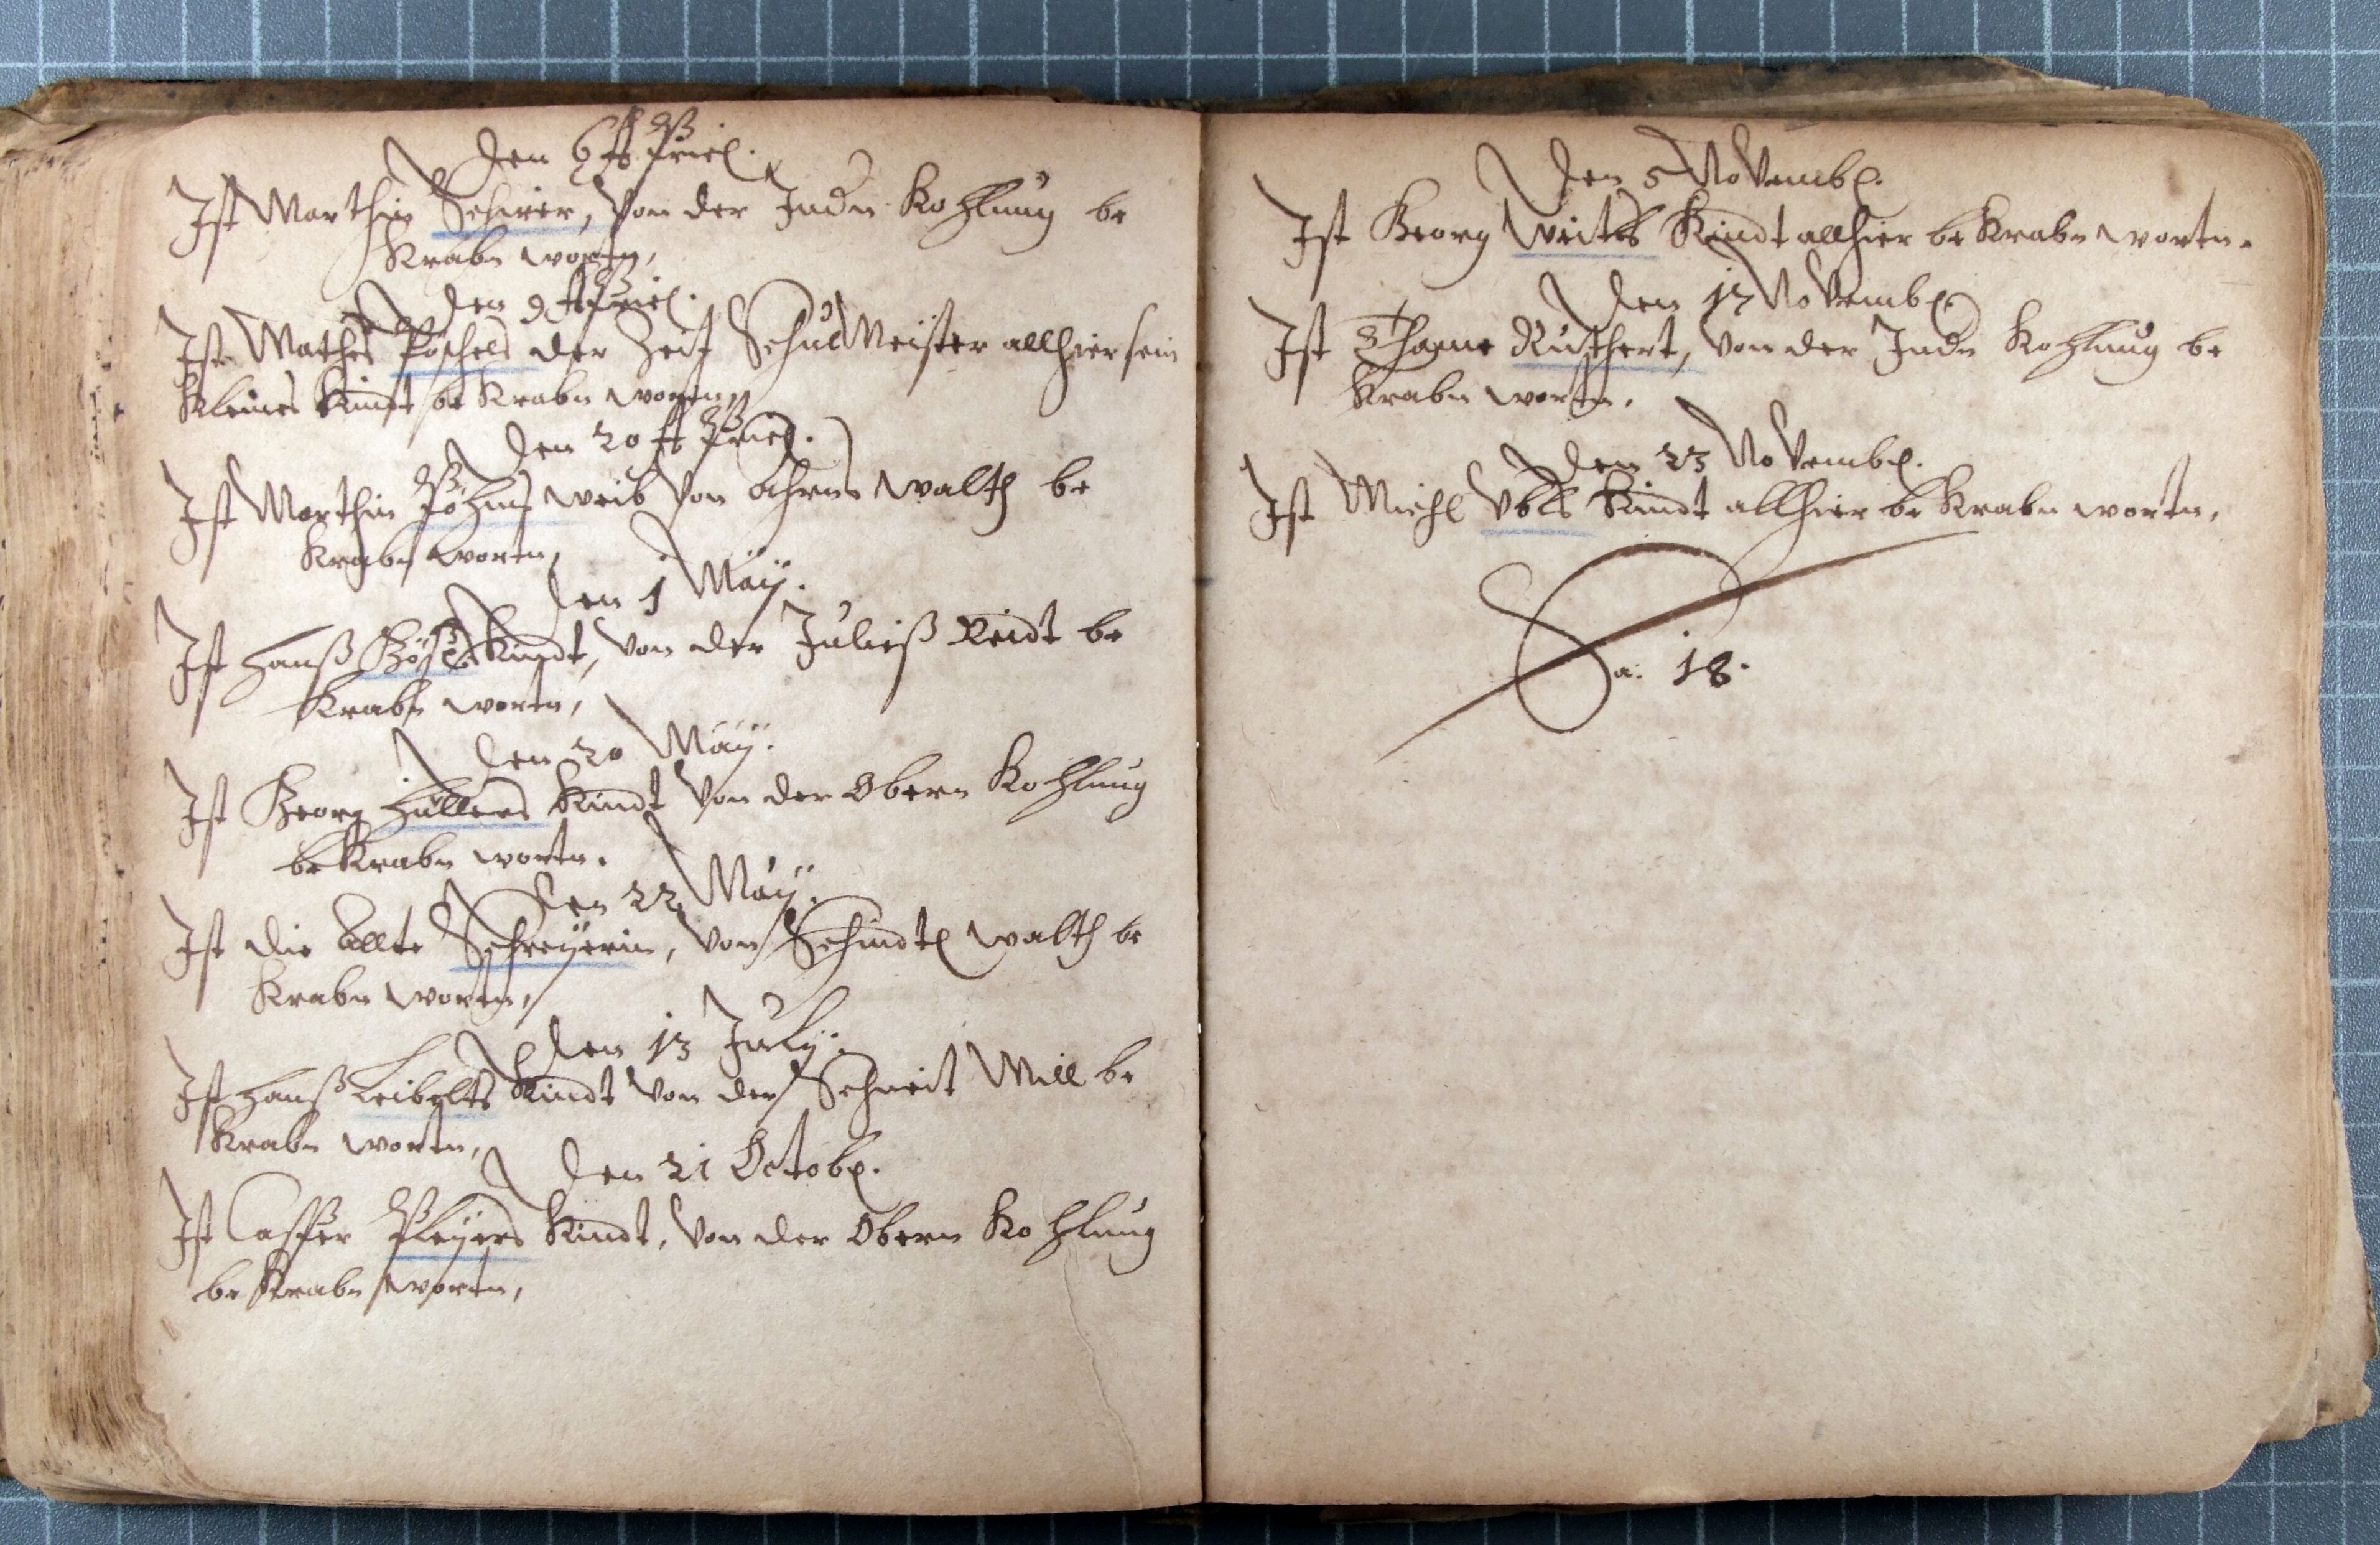 Den 6 Appriel.
Ist Marthin Scheirer, Von der Indn Kohlung be
Krabn wortn,
Den 9 Appriel.
Ist Mathes Pöschels der Zeit Schul Meister allhier sein
Kleines Kindt be Krabn wortn,
Den 20 Appriel.
Ist Marthin Pöhms weib Von Ahrns walth be
Krabn wortn,
Den 1 Maÿ.
Ist Hanß Kindt, Von der Juließ Reidt be
Krabn wortn,
Den 20 Maÿ.
Ist Georg Hüllers Kindt Von der Obern Kohlung
be Krabn wortn.
Den 22 Maÿ.
Ist die Allte Schreÿerin, Von Schmidtl walth be
Krabn wortn,
Den 13 Julÿ.
Ist Hanß Leibelts Kindt Von der Schneit Mill be
Krabn wortn,
Den 21 Octobr.
Ist Casper Pleÿers Kindt, Von der Obern Kohlung
be Krabn wortn,
Den 5 Novembr.
Ist Georg Weits Kindt allhier be Krabn wortn.
Den 17 Novembr.
Ist Ruthert, Von der Indn Kohlung be
Krabn wortn.
Den 23 Novembr.
Ist Michl Vbls Kindt allhier be Krabn wortn,
Sa: 18.